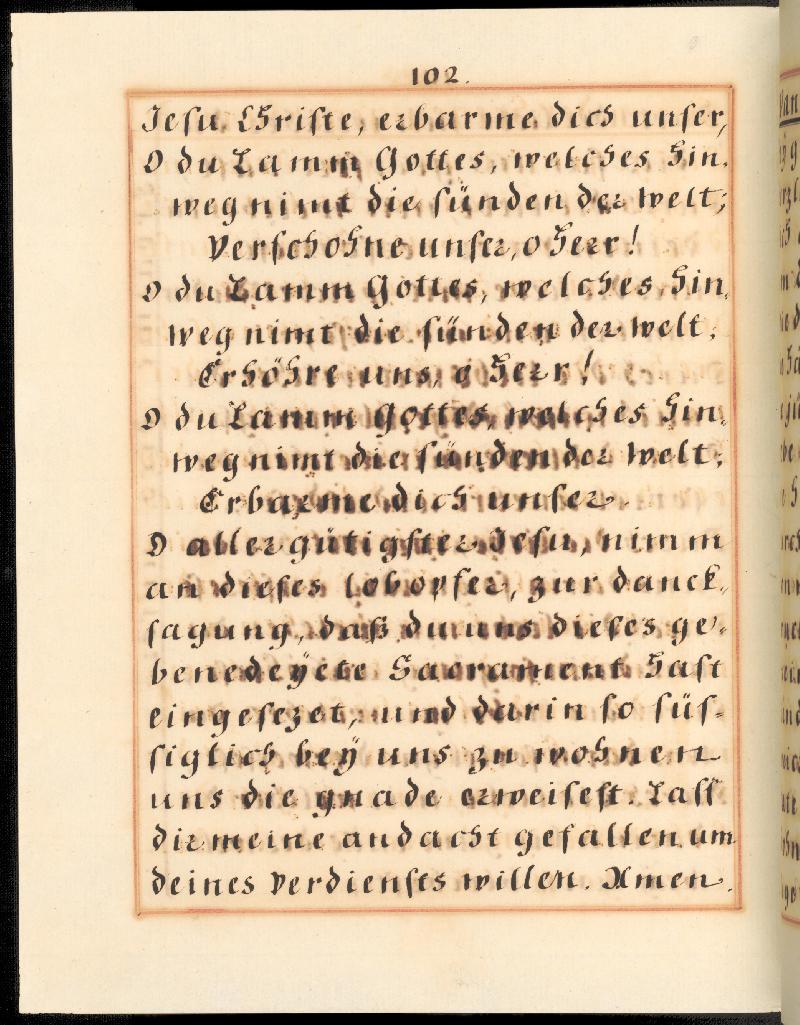 102.
Jesu Christe, erbarme dich unser,
O du Lamm Gottes, welches hin,
weg nimt die sünden der welt;
Verschohne unser, o Herr!
O du Lamm Gottes, welches hin,
weg nimt die sünden der welt,
Erhöhre uns, o Herr!
O du Lamm Gottes, welches hin,
weg nimt die sünden der welt;
Erbarme dich unser.
O allergütigster Jesu, nimm
an dieses lobopfer, zur danck,
sagung, daß du uns dieses ge-
benedeÿete Sacrament hast
eingesezet, und darin so süs-
siglich beÿ uns zu wohnen
uns die gnade erweisest. Lass
dir meine andacht gefallen um
deines Verdiensts willen. Amen.